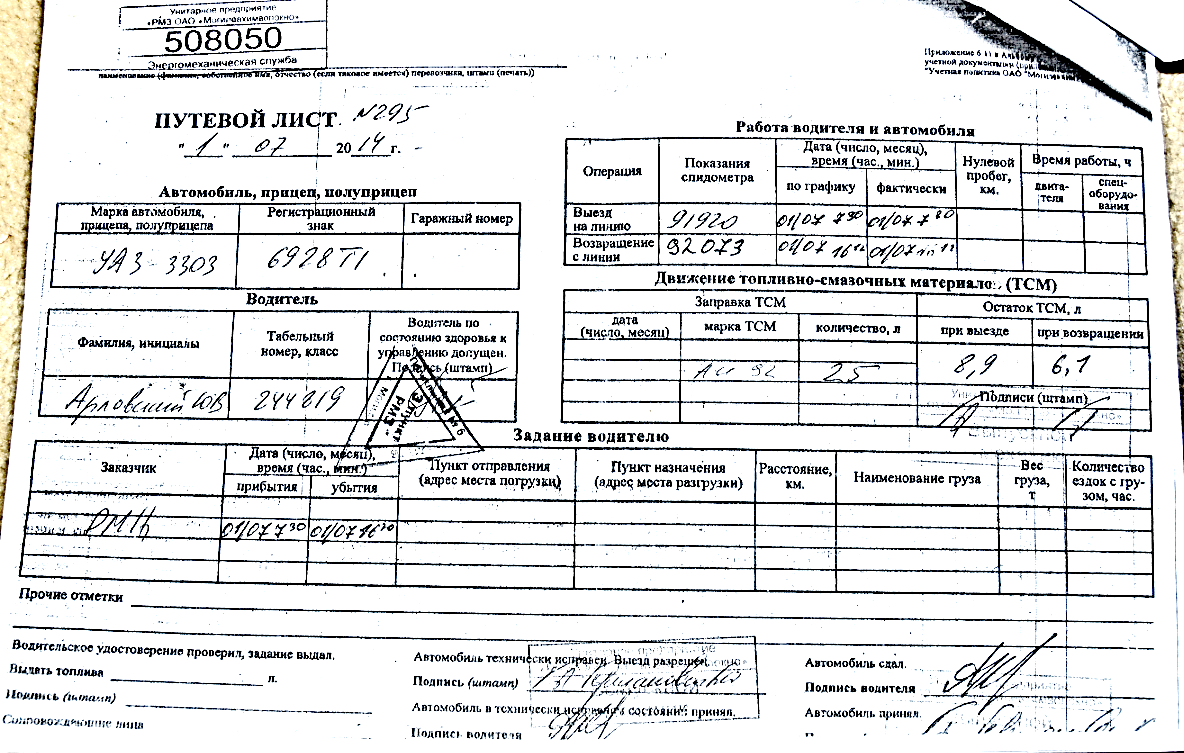 Унитарное предприятие
«РМЗ ОАО «Могилевхимволокно»
508050
Энергомеханическая служба
наименование (фамилия, собственное имя, отчество (если таковое имеется) перевозчика, штамп (печать))
Приложение 6
учетной документации
"Учетная политика ОАО "Могилев
ПУТЕВОЙ ЛИСТ N295
" 1 " 07 2014 г.
Автомобиль, прицеп, полуприцеп
Марка автомобиля, прицепа, полуприцепа Регистрационный знак Гаражный номер
УАЗ-3303 6928 ТІ
Водитель
Фамилия, инициалы Табельный номер, класс Водитель по состоянию здоровья к управлению допущен. Подпись (штамп)
Арловский ЮВ 244819
Работа водителя и автомобиля
Операция Показания спидометра Дата (число, месяц), время (час., мин.) Нулевой пробег, км. Время работы, ч
по графику фактически двига-теля спец-оборудо-вания
Выезд на линию 91920 01/07 7 30 01/07 7 30
Возвращение с линии 92073 01/07 16 01/07
Движение топливно-смазочных материалов (ТСМ)
Заправка ТСМ Остаток ТСМ, л
дата (число, месяц) марка ТСМ количество, л при выезде при возвращении
Аи 92 25 8,9 6,1
Подписи (штамп)
Задание водителю
Заказчик Дата (число, месяц), время (час., мин.) Пункт отправления (адрес места погрузки) Пункт назначения (адрес места разгрузки) Расстояние, км. Наименование груза Вес груза, т Количество ездок с гру-зом, час.
прибытия убытия
01/07 7 30 01/07 16
Прочие отметки
Водительское удостоверение проверил, задание выдал.
Выдать топлива л.
Подпись (штамп)
Сопровождающие лица
Автомобиль технически исправен. Выезд разрешен.
Подпись (штамп)
Автомобиль в технически исправном состоянии принял.
Подпись водителя
Автомобиль сдал.
Подпись водителя
Автомобиль принял.